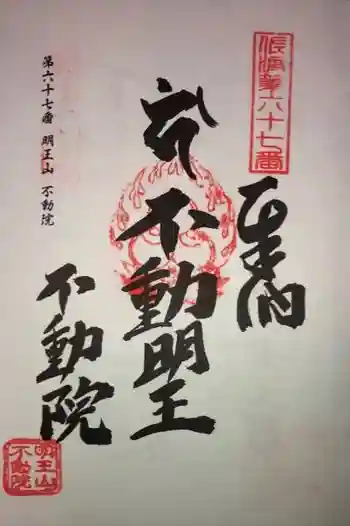 第六十七番
奉納
不動明王
不動院
第六十七番 明王山 不動院
明王山
不動院